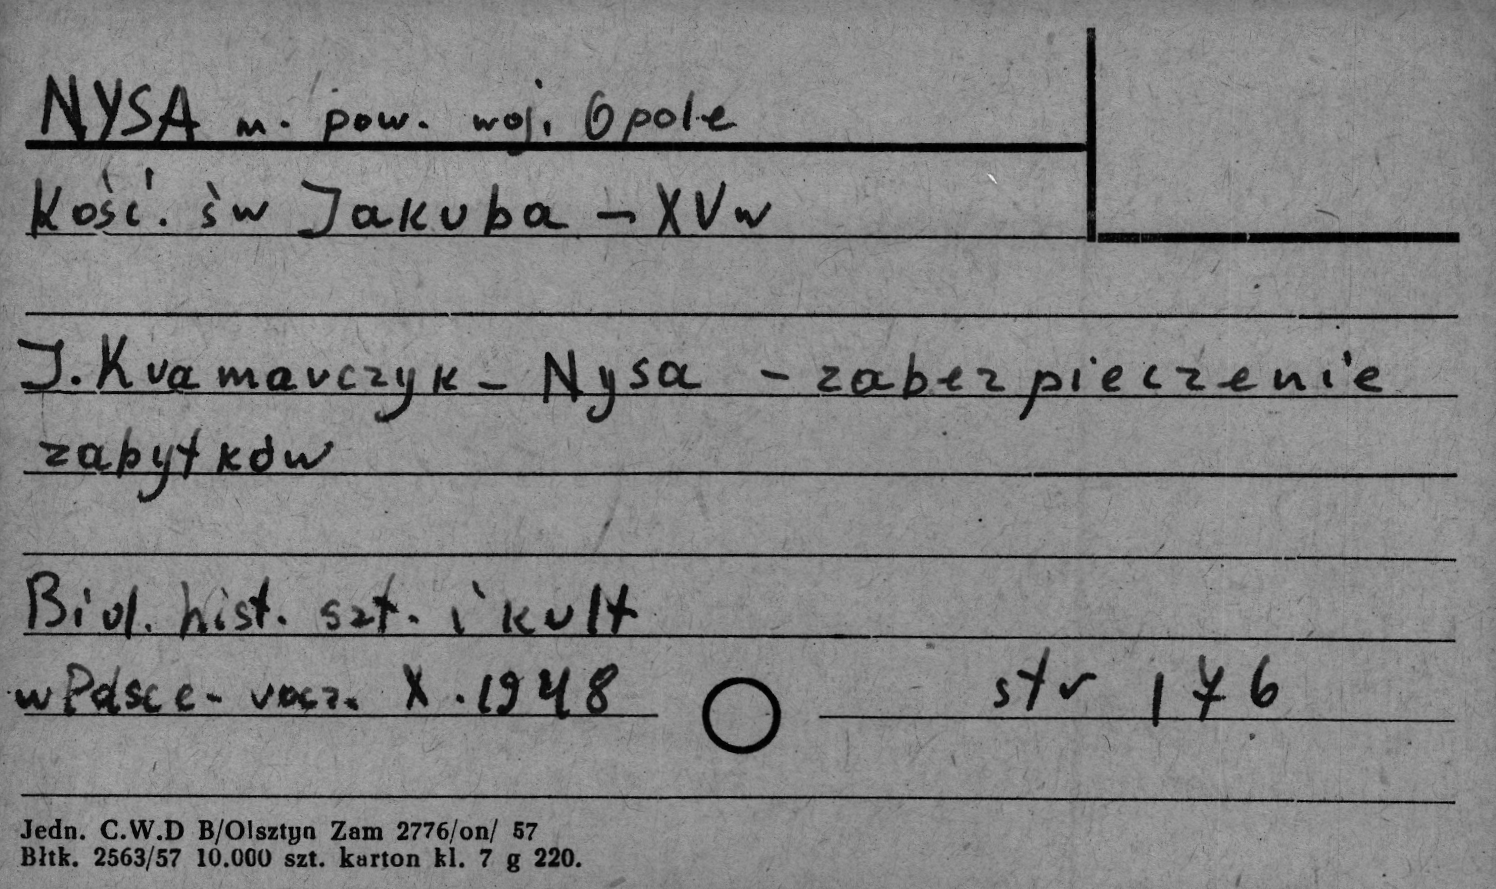 NYSA m. pow. woj. Opole
Kość. św Jakuba - XV w
J. Kramarczyk - Nysa - zabezpieczenie
zabytków
Biul. hist. szt. i kult
w Polsce - rocz. X. 1948 str 176
Jedn. C.W.D B/Olsztyn Zam 2776/on/ 57
Błtk. 2563/57 10.000 szt. karton kl. 7 g 220.